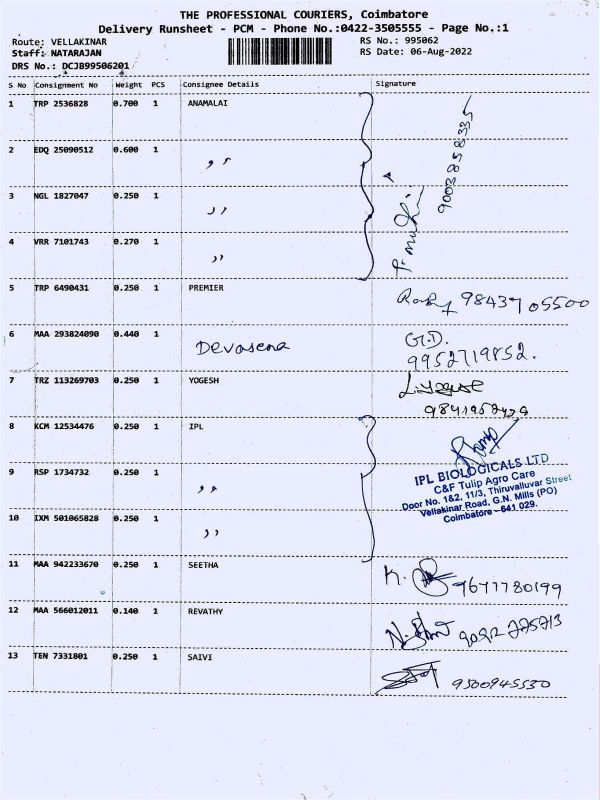 THE PROFESSIONAL COURIERS, Coimbatore
Delivery Runsheet - PCM - Phone No.:0422-3505555 - Page No.:1
Route: VELLAKINAR RS No.: 995062
Staff: NATARAJAN RS Date: 06-Aug-2022
DRS No.: DCJB99506201
S No Consignment No Weight PCS Consignee Details Signature
1 TRP 2536828 0.700 1 ANAMALAI
9003858335
2 EDQ 25090512 0.600 1 ,,
3 NGL 1827047 0.250 1 ,,
4 VRR 7101743 0.270 1 ,,
5 TRP 6490431 0.250 1 PREMIER
9843705500
6 MAA 293824090 0.440 1 Devasena G.D.
9952719852.
7 TRZ 113269703 0.250 1 YOGESH
8 KCM 12534476 0.250 1 IPL
IPL BIOLOGICALS LTD
C&F Tulip Agro Care
Door No. 1&2, 11/3, Thiruvalluvar Street
Vellakinar Road, G.N. Mills (PO)
Coimbatore - 641 029.
9 RSP 1734732 0.250 1 ,,
10 IXM 501065828 0.250 1 ,,
11 MAA 942233670 0.250 1 SEETHA K. 9677780199
12 MAA 566012011 0.140 1 REVATHY
13 TEN 7331801 0.250 1 SAIVI 9500945530